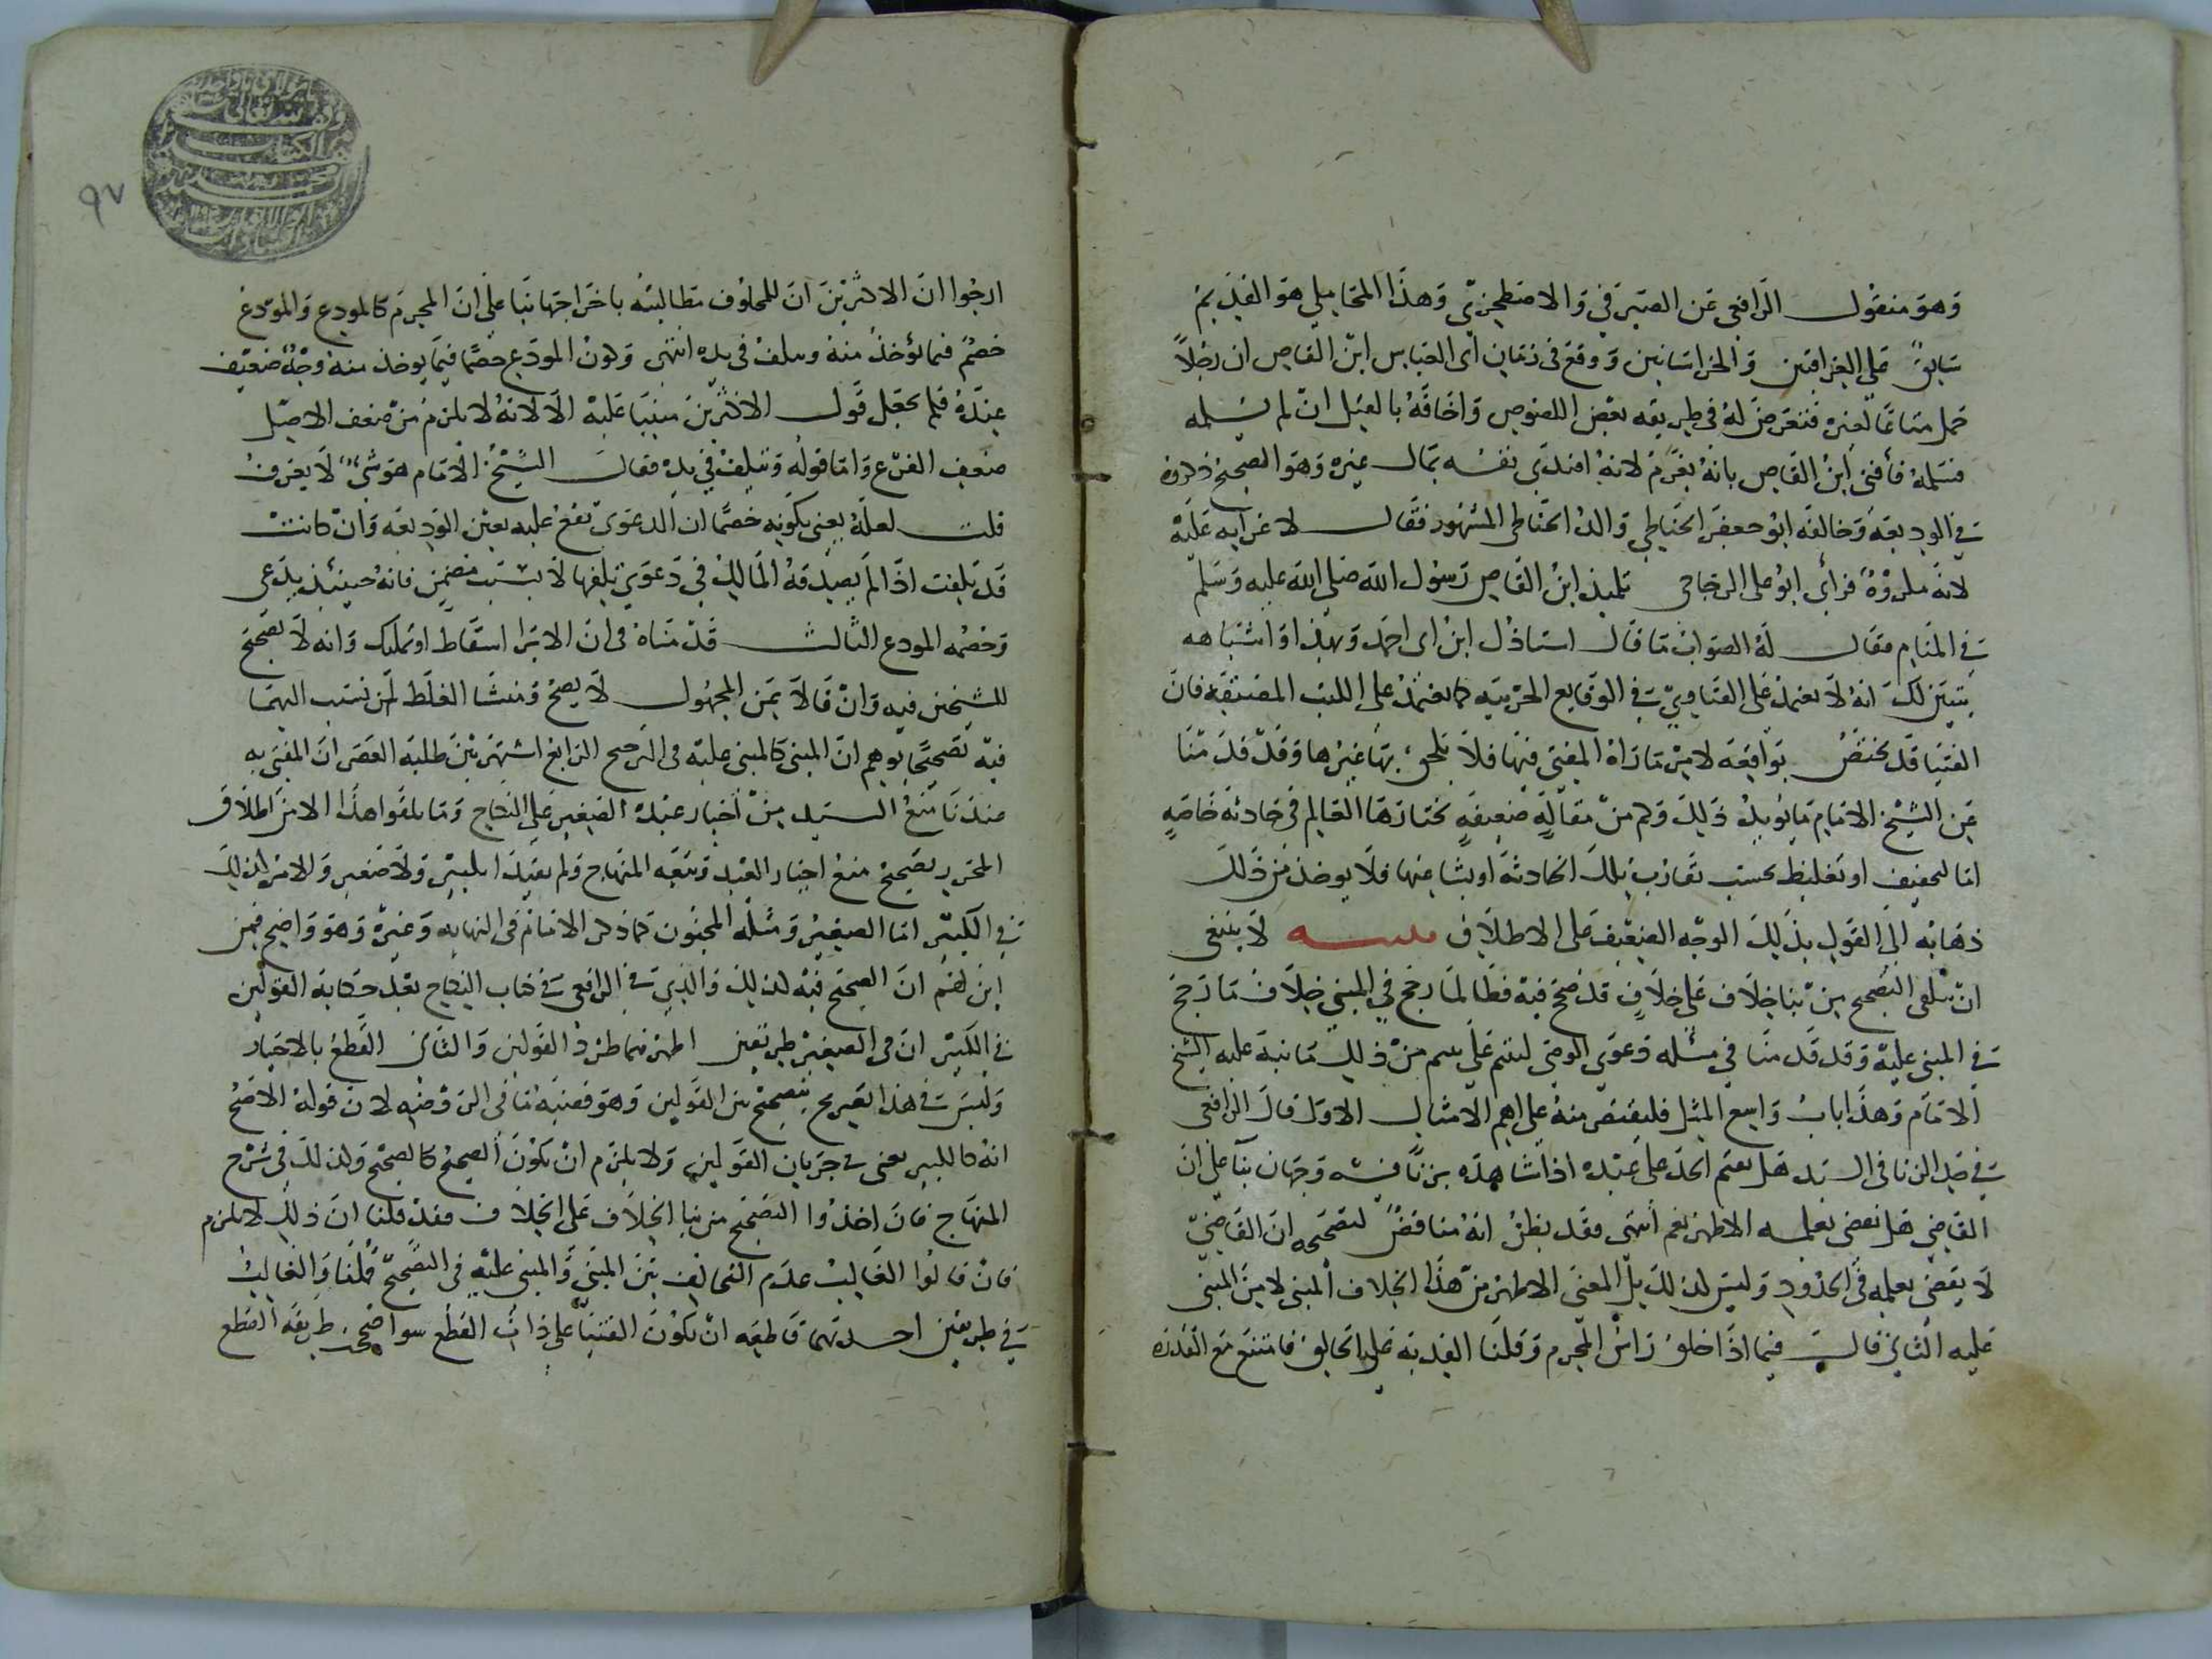 وهو منقول الرافعي عن الصيرفي والاصطخري وهذا المحاملي هو القديم
سابق على العراقيين والخراسانيين ووقع في زمان ابى العباس ابن القاص ان رجلاً
حمل متاعًا لغيره فتعرض له في طريقه بعض اللصوص واخافه بالقتل ان لم يسلمه
فسلمه فأفتى ابن القاص بانه يغرم لانه افتدى نفسه بمال غيره وهو الصحيح ذكروه
في الوديعة وخالفه ابو جعفر الحناطي والد الحناطي المشهور فقال لا غرامة عليه
لانه مكروه فرأى ابو على الزجاجي تلميذ ابن القاص رسول الله صلى الله عليه وسلم
في المنام فقال له الصواب ما قال استاذك ابن ابى احمد وبهذا واشباهه
يتبين لك انه لا يعتمد على الفتاوي في الوقايع الجزئية كما يعتمد على الكتب المصنفة فان
الفتيا قد تختص بواقعة لامر ما راه المفتى فيها فلا يلحق بها غيرها وقد قدمنا
عن الشيخ الامام ما يؤيد ذلك وكم من مقالةٍ ضعيفةٍ يختارها العالم في حادثة خاصةٍ
اما لتخفيف او تغليظ بحسب تقارب تلك الحادثة او بشاعتها فلا يوخذ من ذلك
ذهابه الى القول بذلك الوجه الضعيف على الاطلاق تنبيه لا ينبغي
ان يتلقى التصحيح من بنا خلاف على خلافٍ قد صحح فيه فطالما رجح في المبني خلاف ما رجح
في المبنى عليه وقد قدمنا في مسئلة دعوى الوصي ليتيم على يتيم من ذلك ما نبه عليه الشيخ
الامام وهذا باب واسع المثل فليقتصر منه على اهم الامثال الاول قال الرافعي
في حد الزنا في السيد هل يقيم الحد على عبده اذا شاهده بزنا فيه وجهان بنآ على ان
القاضي هل يقضي بعلمه الاظهر نعم انتهى فقد يظن انه مناقض لتصحيحه ان القاضي
لا يقضي بعلمه في الحدود وليس كذلك بل المعنى الاظهر من هذا الخلاف المبنى لا من المبني
عليه الثاني قال فيما اذا حلق راس المحرم وقلنا الفدية على الحالق فامتنع مع القدرة
٩٧
ارجوا ان الاكثرين ان للمحلوق مطالبته باخراجها بنا على ان المحرم كالمودع والمودع
خصم فيما يؤخذ منه ويتلف في يده انتهى وكون المودع خصمًا فيما يوخذ منه وجه ضعيف
عنده فلم يجعل قول الاكثرين مبنيا عليه الا لانه لا يلزم من ضعف الاصل
ضعف الفرع واما قوله ويتلف في يده فقال الشيخ الامام هو شئ لا يعرف
قلت لعله يعني بكونه خصمًا ان الدعوى تقع عليه بعين الوديعة وان كانت
قد تلفت اذا لم يصدقه المالك في دعوى تلفها لا بسبب مضمن فانه حينئذ يدعي
وخصمه المودع الثالث قدمناه في ان الابرا اسقاط او تمليك وانه لا تصحيح
للشيخين فيه وان قالا بمن المجهول لا يصح ومنشا الغلط لمن نسب اليهما
فيه تصحيحًا يوهم ان المبنى كالمبنى عليه في الترجيح الرابع اشتهر بين طلبة العصر ان المفتى به
عندنا منع السيد من اجبار عبده الصغير على النكاح وما تلقوا هذا الا من اطلاق
المحرر تصحيح منع اجبار العبد وتبعه المنهاج ولم يقيدا بكبير ولا صغير والامر كذلك
في الكبير اما الصغير ومثله المجنون كما ذكر الامام في النهاية وغيره وهو واضح فمن
اين لهم ان الصحيح فيه كذلك والذي في الرافعي في كتاب النكاح بعد حكاية القولين
في الكبير ان في الصغير طريقين اظهرهما طرد القولين والثاني القطع بالاجبار
وليس في هذا تصريح بتصحيح من القولين وهو في الروضة لان قوله الاصح
انه كالكبير يعنى في جريان القولين ولا يلزم ان يكون الصحيح كالصحيح وكذلك في شرح
المنهاج فان اخذوا التصحيح من بنا الخلاف على الخلاف فقد قلنا ان ذلك لا يلزم
فان قالوا الغالب عدم التخالف بين المبني والمبني عليه في التصحيح قلنا والغالب
في طريقين احدهما قاطعة ان يكون الفتيا على ذات القطع سوا صححت طريقة القطع